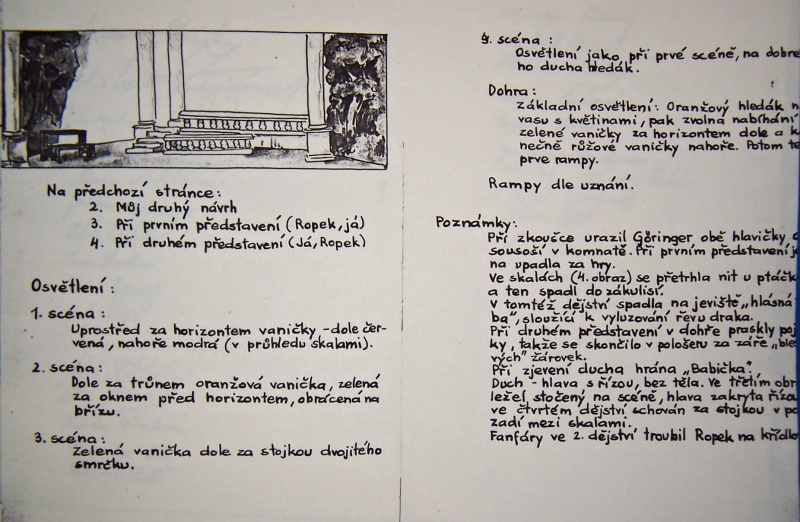 Na předchozí stránce:
2. Můj druhý návrh
3. Při prvním představení (Ropek, já)
4. Při druhém představení (Já, Ropek)
Osvětlení:
1. scéna:
Uprostřed za horizontem vaničky - dole čer-
vená, nahoře modrá (v průhledu skalami).
2. scéna:
Dole za trůnem oranžová vanička, zelená
za oknem před horizontem, obrácená na
břízu.
3. scéna:
Zelená vanička dole za stojkou dvojitého
smrčku.
4. scéna:
Osvětlení jako při prvé scéně, na dobré
ho ducha hledák.
Dohra:
Základní osvětlení. Oranžový hledák n
vasu s květinami, pak zvolna nabíhání
zelené vaničky za horizontem dole a k
nečně růžové vaničky nahoře. Potom te
prve rampy.
Rampy dle uznání.
Poznámky:
Při zkoušce urazil Göringer obě hlavičky
sousoší v komnatě. Při prvním představení j
na upadla za hry.
Ve skalách (4. obraz) se přetrhla nit u ptáčk
a ten spadl do zákulisí.
V tomtéž dějství spadla na jeviště „hlásná
ba", sloužící k vyluzování řevu draka.
Při druhém představení v dohře praskly poj
ky, takže se skončilo v pološeru za záře „ble
vých" žárovek.
Při zjevení ducha hrána „Babička".
Duch - hlava s řízou, bez těla. Ve třetím obr
ležel stočený na scéně, hlava zakryta řízou
ve čtvrtém dějství schován za stojkou v po
zadí mezi skalami.
Fanfáry ve 2. dějství troubil Ropek na křídlo